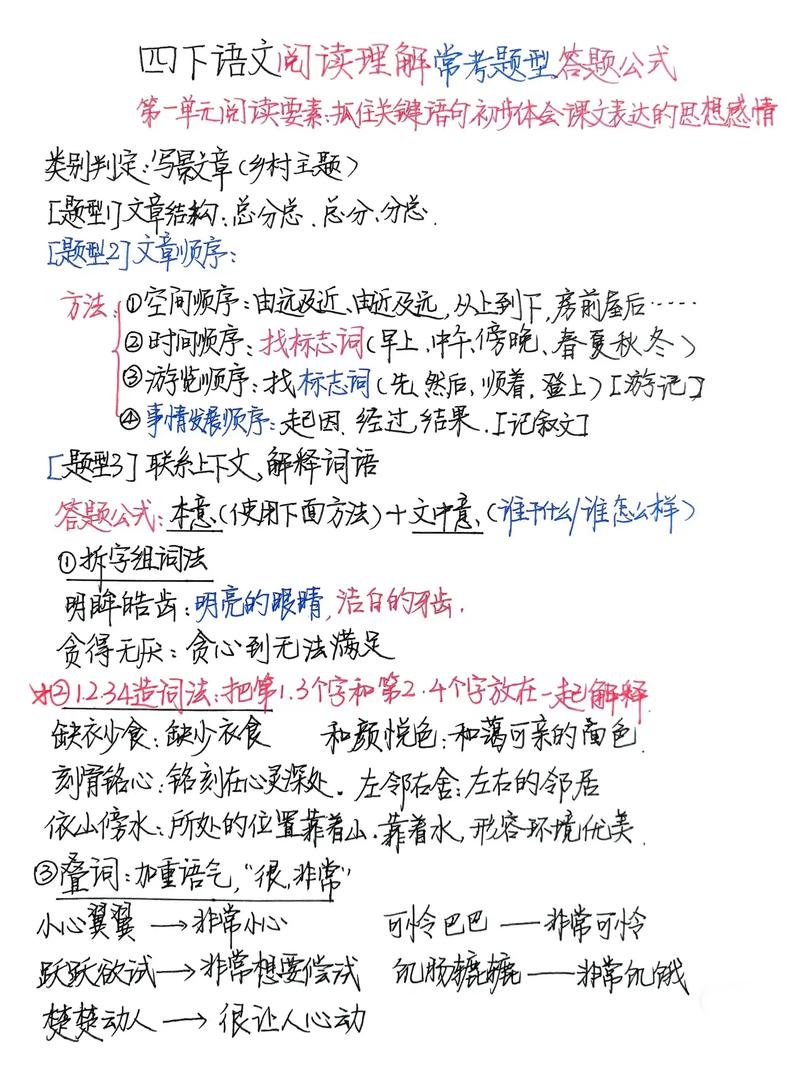 四下语文阅读理解常考题型答题公式
第一单元阅读要素:抓住关键语句初步体会课文表达的思想感情
类别判定:写景文章(乡村主题)
[题型1]文章结构:总分总、总分、分总.
[题型2]文章顺序:
方法:①空间顺序:由远及近、由近及远,从上到下,房前屋后……
②时间顺序:找标志词(早上、中午、傍晚、春夏秋冬)
③游览顺序:找标志词(先、然后、顺着,登上)[游记]
④事情发展顺序:起因、经过、结果.[记叙文]
[题型3]联系上下文,解释词语
答题公式:本意、(使用下面方法)+文中意、(谁干什么/谁怎么样)
①拆字组词法
明眸皓齿:明亮的眼睛,洁白的牙齿.
贪得无厌:贪心到无法满足
②1.2.34造词法:把第1.3个字和第2.4个字放在一起解释
缺衣少食:缺少衣食 和颜悦色:和蔼可亲的面色.
刻骨铭心:铭刻在心灵深处. 左邻右舍:左右的邻居
依山傍水:所处的位置靠着山.靠着水,形容环境优美.
③叠词:加重语气,"很,非常"
小心翼翼→非常小心 可怜巴巴——非常可怜
跃跃欲试→非常想要尝试 饥肠辘辘——非常饥饿
楚楚动人→很让人心动